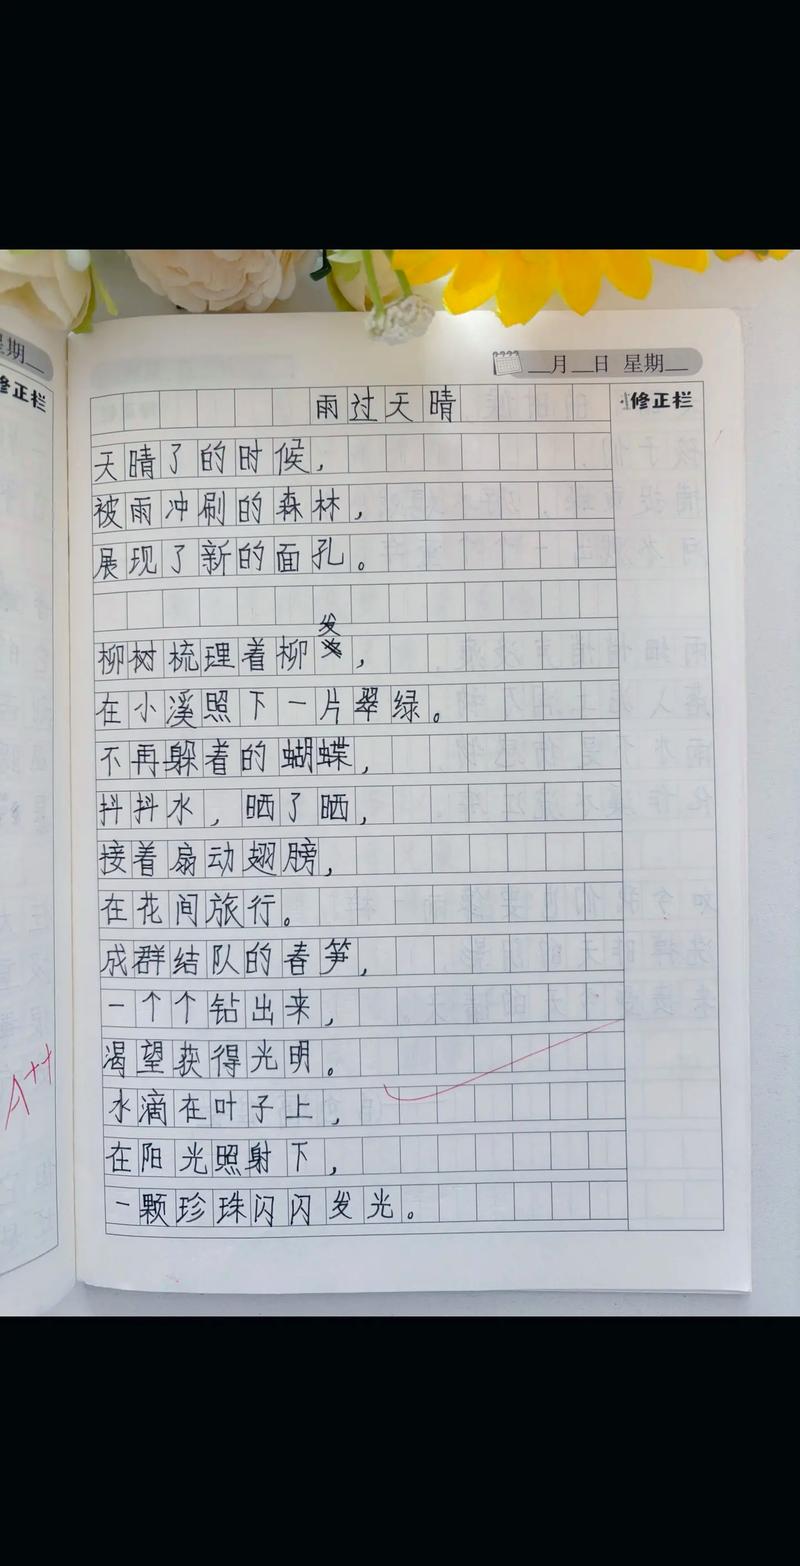 星期__
修正栏
A++
__月__日 星期__
修正栏
雨过天晴
天晴了的时候，
被雨冲刷的森林，
展现了新的面孔。
柳树梳理着柳发，
在小溪照下一片翠绿。
不再躲着的蝴蝶，
抖抖水，晒了晒，
接着扇动翅膀，
在花间旅行。
成群结队的春笋，
一个个钻出来，
渴望获得光明。
水滴在叶子上，
在阳光照射下，
一颗珍珠闪闪发光。